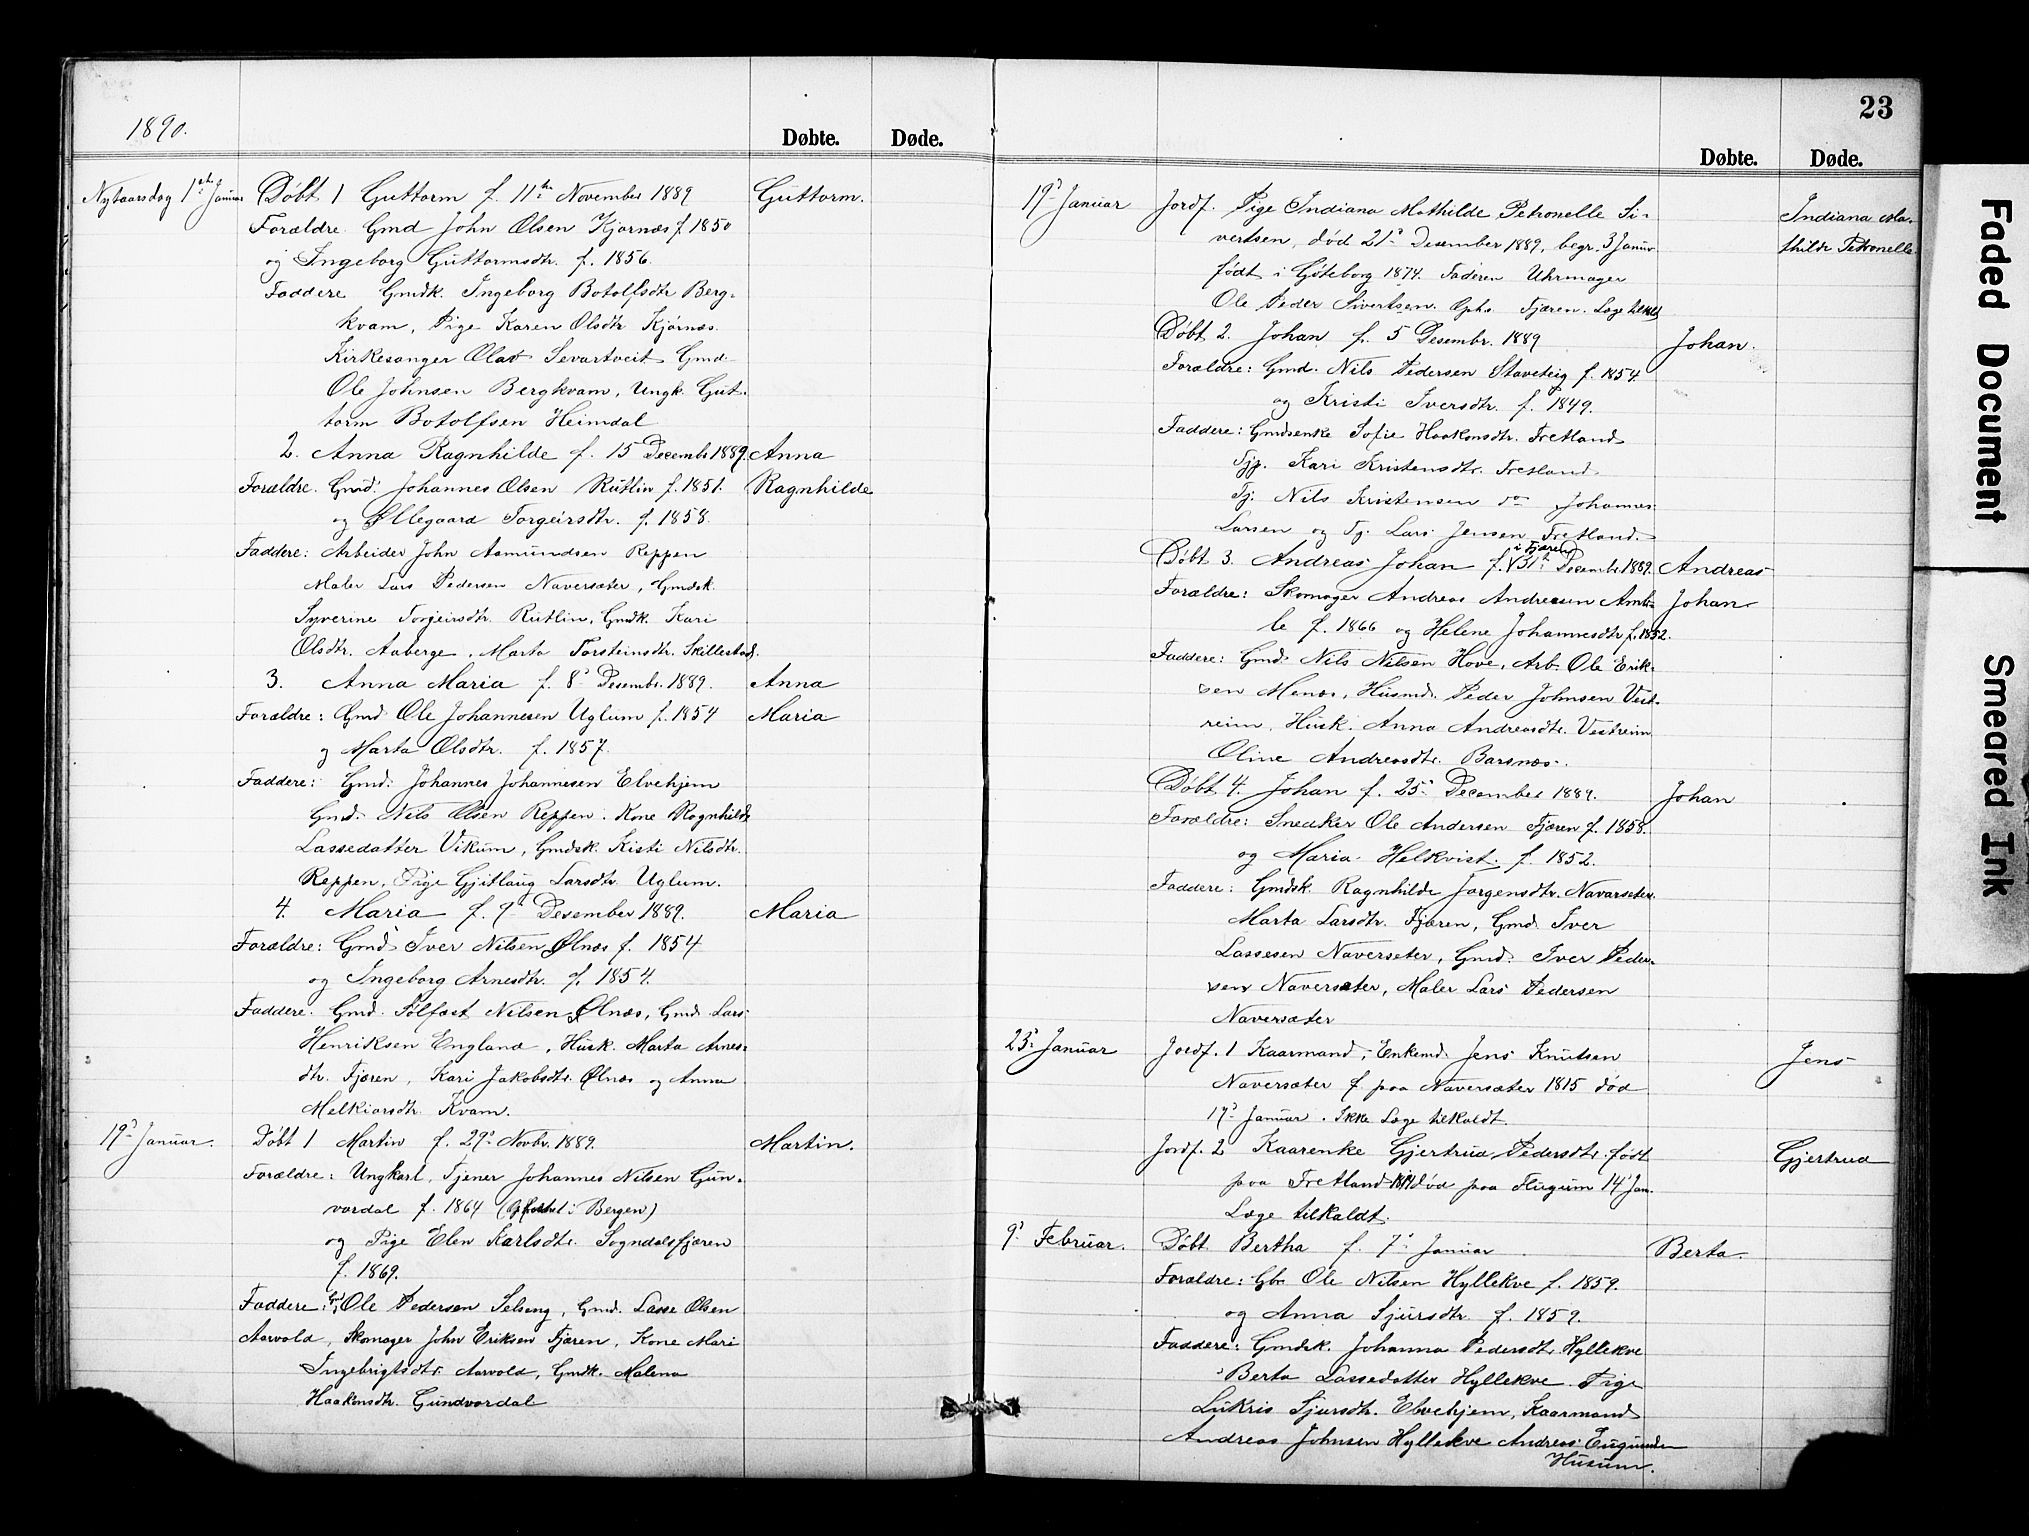 1890.
Døbte. Døde.
Nytaarsdag 1ste Januar Døbt 1 Guttorm f. 11te November 1889 Guttorm.
Forældre Gmd John Olsen Kjørnæs f. 1850
og Ingeborg Guttormsdtr. f. 1856.
Faddere Gmdk. Ingeborg Botolfsdtr Berg-
kvam, Pige Karen Olsdtr Kjørnæs.
Kirkesanger Olav Sevartveit Gmd
Ole Johnsen Bergkvam, Ungk. Gut-
torm Botolfsen Heimdal
2. Anna Ragnhilde f. 15 Decembr 1889. Anna
Forældre. Gmd. Johannes Olsen Rutlin f. 1851. Ragnhilde
og Øllegaard Torgeirsdtr. f. 1858.
Faddere: Arbeider John Aamundsen Reppen
Maler Lars Pedersen Naversæter, Gmdsk.
Syverine Torgeirsdtr. Rutlin, Gmdk. Kari
Olsdtr. Aaberge, Marta Torsteinsdtr. Skillestad.
3. Anna Maria f. 8de Desembr. 1889. Anna
Forældre: Gmd Ole Johannesen Uglum f. 1854 Maria
og Marta Olsdtr. f. 1857.
Faddere: Gmd. Johannes Johannesen Elvehjem
Gmd. Nils Olsen Reppen. Kone Ragnhilde
Lassedatter Vikum, Gmdsk. Kisti Nilsdtr.
Reppen, Pige Gjitlaug Larsdtr. Uglum.
4. Maria f. 9de Desember 1889. Maria
Forældre: Gmd Iver Nilsen Ølnæs f. 1854
og Ingeborg Arnesdtr. f. 1854.
Faddere. Gmd. Tølfæst Nilsen Ølnæs, Gmd Lars
Henriksen England, Husk. Marta Arnes-
dtr. Fjæren, Kari Jakobsdtr. Ølnæs og Anna
Melkiorsdtr. Kvam.
19de Januar. Døbt 1 Martin f. 29de Novbr. 1889. Martin.
Forældre: Ungkarl, Tjener Johannes Nilsen Gun-
vordal f. 1864 ( i Bergen)
og Pige Elen Karlsdtr. Sogndalsfjæren
f. 1869.
Faddere: Gmd Ole Pedersen Selseng, Gmd. Lasse Olsen
Aarvold, Skomager John Eriksen Fjæren, Kone Mari
Ingebrigtsdtr. Aarvold, Gmdk. Malena
Haakonsdtr. Gundvordal
23
Døbte. Døde.
19de Januar Jordf. Pige Indiana Mathilde Petronelle Si- Indiana Ma-
vertsen, død 21de Desember 1889, begr. 3 Januar thilde Petronelle
født i Gøteborg 1874. Faderen Uhrmager
Ole Peder Sivertsen. Oph. Fjæren. Læge tilkaldt
Døbt 2. Johan f. 5 Desembr. 1889 Johan.
Forældre: Gmd. Nils Pedersen Staveteig f. 1854.
og Kristi Iversdtr. f. 1849.
Faddere: Gmdsenke Sofie Haakonsdtr. Fretland
Tjp. Kari Kristensdtr. Fretland.
Tj. Nils Kristensen do Johannes
Larsen og Tj. Lars Jensen Fretland.
i Fjæren
Døbt 3. Andreas Johan f. 31te Decembr 1889. Andreas
Forældre: Skomager Andreas Andresen Amb- Johan
le f. 1866 og Helene Johannesdtr f. 1852.
Faddere: Gmd. Nils Nilsen Hove, Arb. Ole Erik-
sen Menæs, Husmd. Peder Johnsen Vest-
reim, Husk. Anna Andreasdtr. Vestreim
Oline Andreasdtr. Barsnæs.
Døbt 4. Johan f. 25de December 1889. Johan
Forældre: Snedker Ole Andersen Fjæren f. 1858.
og Maria Helkvist. f. 1852.
Faddere: Gmdsk. Ragnhilde Jørgensdtr. Navarsæter.
Marta Larsdtr. Fjæren, Gmd. Iver
Lassesen Naversæter, Gmd. Iver Peder-
sen Naversæter, Maler Lars Pedersen
Naversæter
23de Januar Jordf. 1 Kaarmand, Enkemd. Jens Knutsen Jens
Naversæter f. paa Naversæter 1815 død
17de Januar. Ikke Læge tilkaldt.
Jordf. 2 Kaarenke Gjertrud Pedersdtr. født Gjertrud
paa Fretland død paa Flugum 14de Jan.
Læge tilkaldt.
9de Februar. Døbt Bertha f. 7de Januar Berta.
Forældre: Gbr. Ole Nilsen Hyllekve f. 1859.
og Anna Sjursdtr. f. 1859.
Faddere: Gmdsk. Johanna Pedersdtr. Hyllekve
Berta Lassedatter Hyllekve. Pige
Lukris Sjursdtr. Elvehjem, Kaarmand
Andreas Johnsen Hyllekve Andreas
Husum.
Faded Document
Smeared Ink